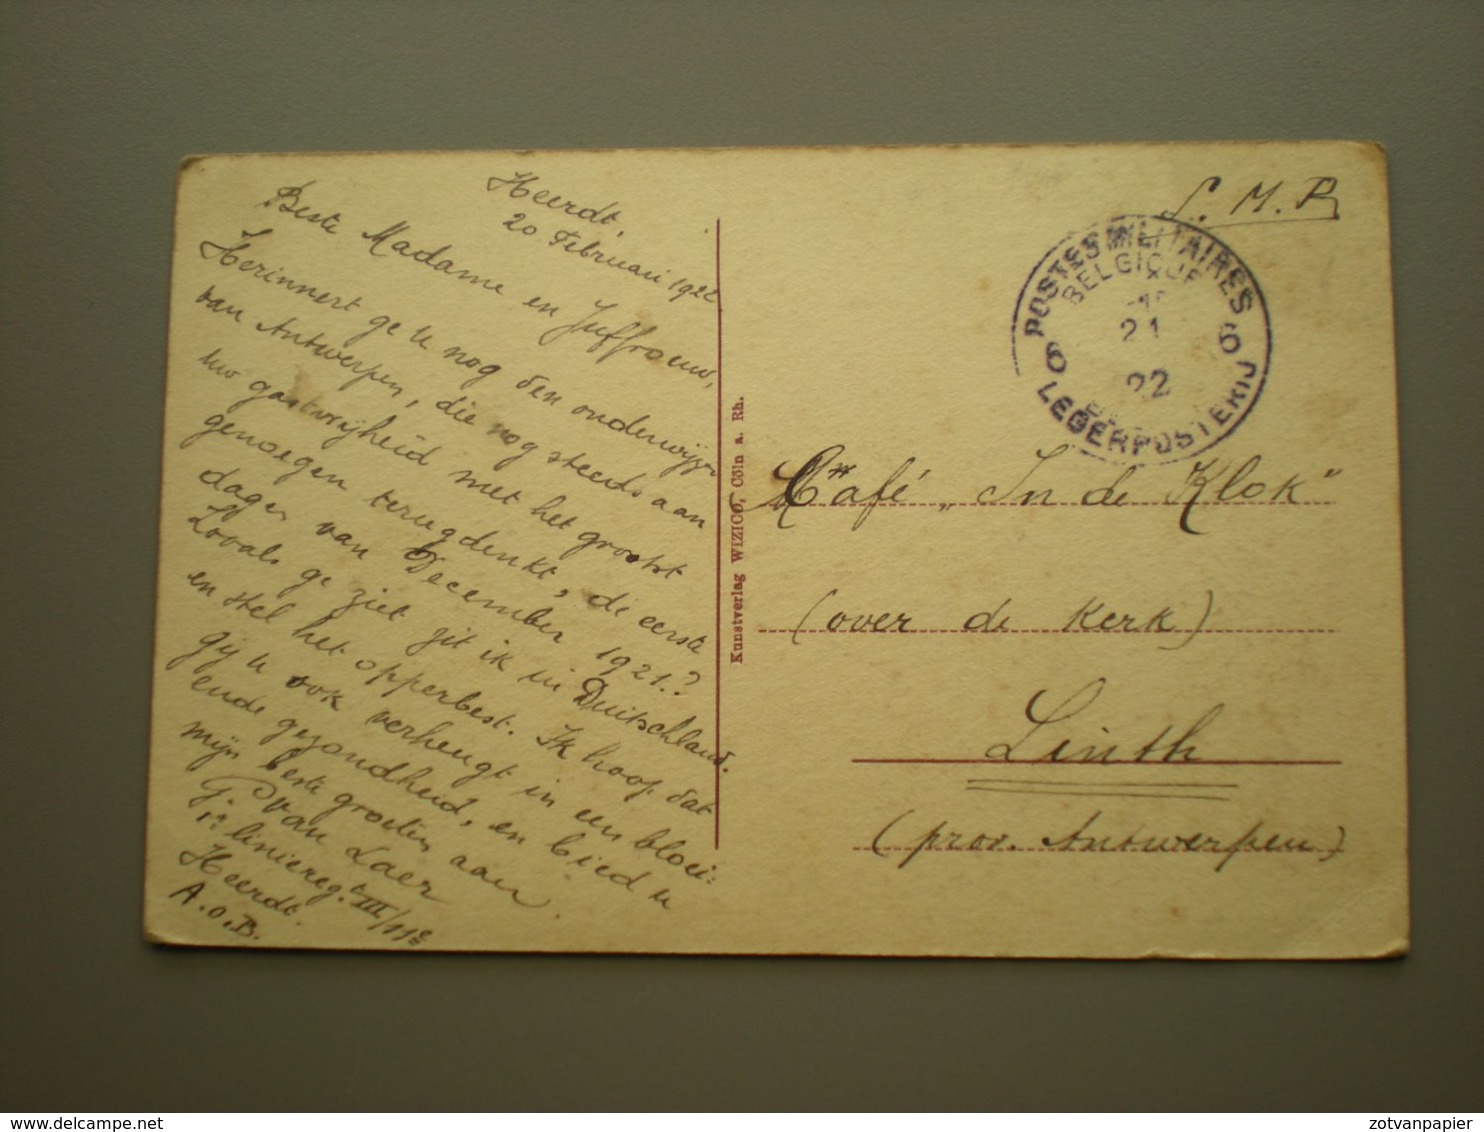 Heerdt,
20 Februari 1922
Beste Madame en Juffrouw,
Herinnert ge u nog den onderwijzer
van Antwerpen, die nog steeds aan
uw gastvrijheid met het grootst
genoegen terugdenkt, de eerste
dagen van December 1921?
Zooals ge ziet zit ik in Duitschland.
en stel het opperbest. Ik hoop dat
gij u ook verheugt in een bloei-
ende gezondheid, en bied u
mijn beste groeten aan.
G. van Laer
liniereg.t III/11e
Heerdt.
A.O.B.
Kunstverlag WIZICO, Cöln a. Rh.
S. M. P
POSTES MILITAIRES
BELGIQUE
21
22
6 6
LEGERPOSTERIJ
Café „In de Klok"
(over de Kerk)
Linth
(prov. Antwerpen)
zotvanpapier